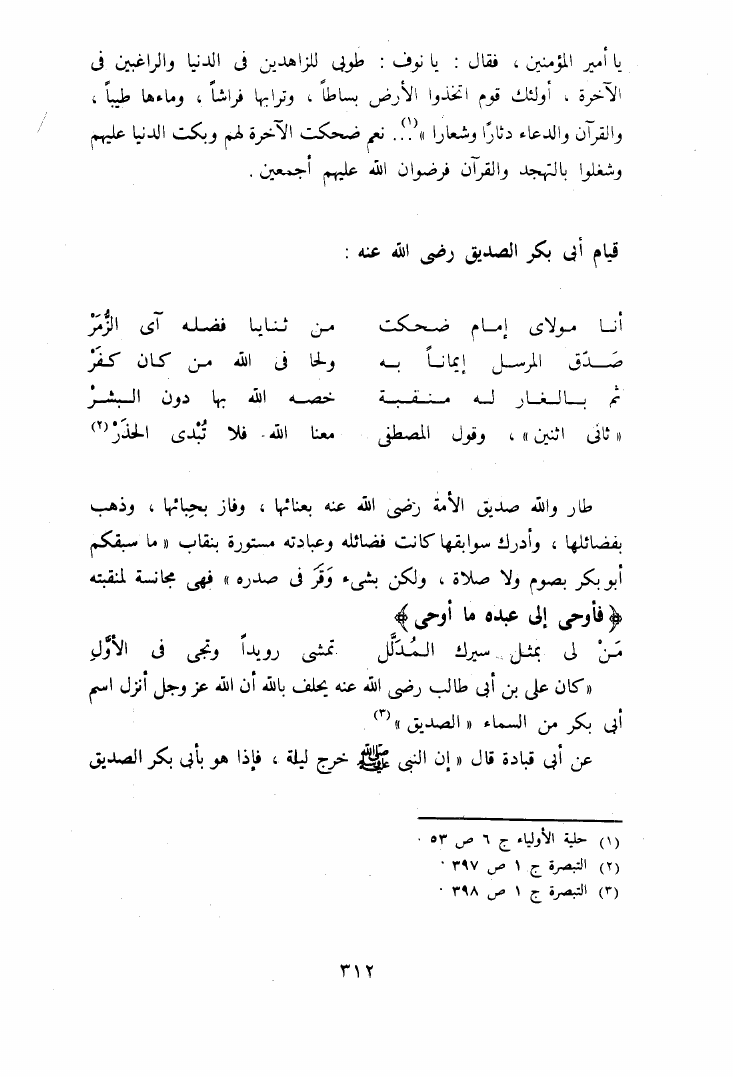 يا أمير المؤمنين ، فقال : يا نوف : طوبى للزاهدين فى الدنيا والراغبين فى
الآخرة ، أولئك قوم اتخذوا الأرض بساطاً ، وترابها فراشاً ، وماءها طيباً ،
والقرآن والدعاء دثارًا وشعارا »(١). . نعم ضحكت الآخرة لهم وبكت الدنيا عليهم
وشغلوا بالتهجد والقرآن فرضوان الله عليهم أجمعين .
قيام أبى بكر الصديق رضى الله عنه :
أنـا مـولاى إمـام ضـحكت من ثـنـايـا فضـلـه آى الزُّمَرْ
صَـدّق المرسـل إيمانـاً بـه ولحا فى الله مـن كـان كـفَرْ
ثم بـالـغـار لـه مـنـقـبـة خصـه الله بها دون الـبـشـرْ
« ثانى اثنين » ، وقول المصطفى معنا الله فلا تُبْدى الحذَرْ(٢)
طار والله صديق الأمة رضى الله عنه بعنائها ، وفاز بحبائها ، وذهب
بفضائلها ، وأدرك سوابقها كانت فضائله وعبادته مستورة بنقاب « ما سبقكم
أبو بكر بصوم ولا صلاة ، ولكن بشىء وَقَرَ فى صدره » فهى مجانسة لمنقبته
﴿ فأوحى إلى عبده ما أوحى ﴾
مَـنْ لى بمثـل سيرك الـمُدَلَّل تمشى رويداً وتجى فى الأوَّلِ
« كان على بن أبى طالب رضى الله عنه يحلف بالله أن الله عز وجل أنزل اسم
أبى بكر من السماء « الصديق »(٣)
عن أبى قبادة قال « إن النبى ﷺ خرج ليلة ، فإذا هو بأبى بكر الصديق
(١) حلية الأولياء ج ٦ ص ٥٣ .
(٢) التبصرة ج ١ ص ٣٩٧ .
(٣) التبصرة ج ١ ص ٣٩٨ .
٣١٢